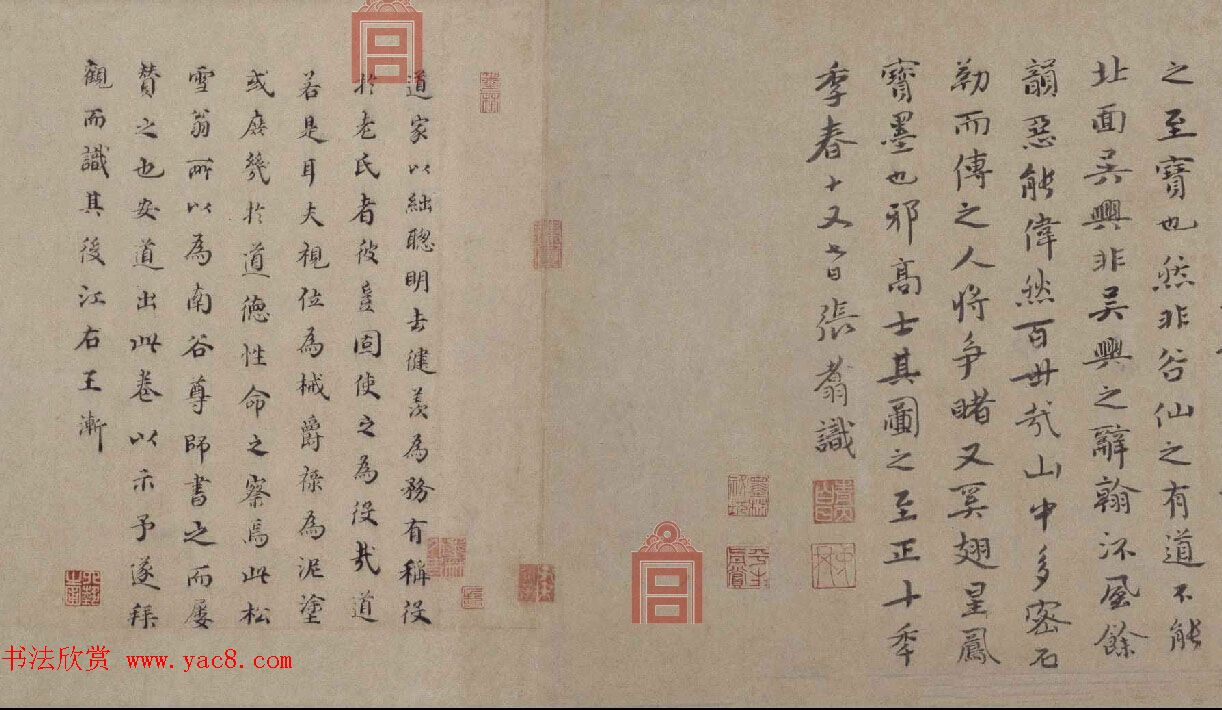 之至寶也然非谷仙之有道不能
北面吴興非吴興之辭翰流風餘
韻惡能偉然百世哉山中多密石
勒而傳之人將争睹又奚翅星鳳
寶墨也邪高士其圖之至正十年
季春十又六日張翥識
道家以絀聰明去健羡為務有稱役
於老氏者彼豈固使之為役哉道
若是耳夫視位為械爵祿為泥塗
或庶幾於道德性命之察焉此松
雪翁所以為南谷尊師書之而屢
贊之也安道出此卷以示予遂拜
觀而識其後江右王漸
书法欣赏 www.yac8.com